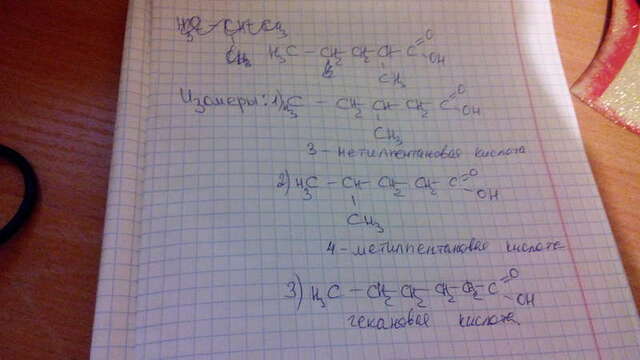 H₃C – CH₂ CH₂ CH – C =O OH
CH₃
Изомеры: 1) H₃C – CH₂ – CH – CH₂ C =O OH
CH₃
3 – метилпентановая кислота
2) H₃C – CH – CH₂ – CH₂ C =O OH
CH₃
4 – метилпентановая кислота
3) H₃C – CH₂ CH₂ CH₂ CH₂ C =O OH
гексановая кислота